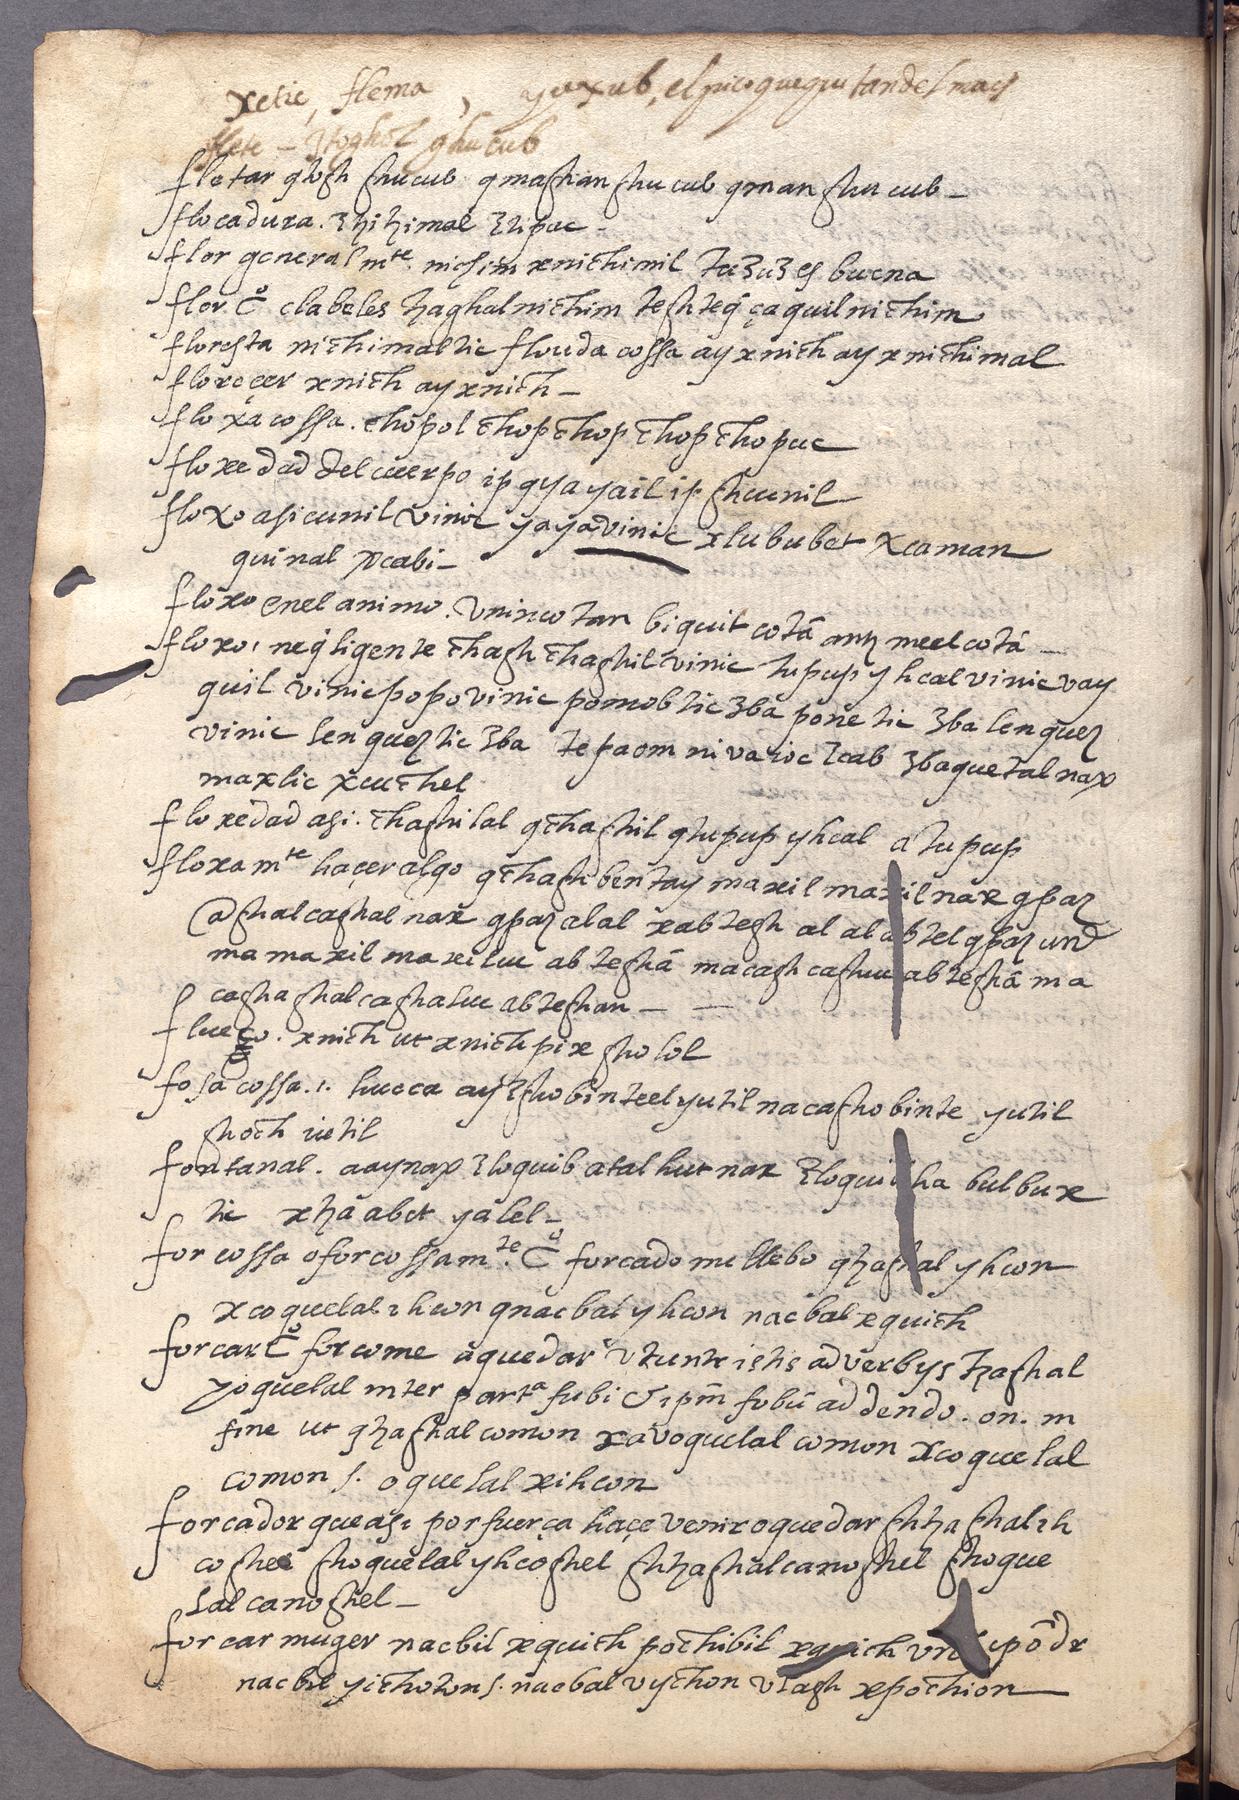 xetic, flema, yuxub, el pico que quitan del mays
flete — ztoghol ghucub
fletar qtogh ghucub qmaghan ghucub qman ghucub —
flocadura. zhihimal zlipuc —
flor generalmte. nichim xnichimil tuzuz es buena
flor C̊ clabeles tzaghal nichim teghteq çaquil nichim
floresta nichimaltic flouda cossa ay xnich ay xnichimal
floreçer xnich ay xnich —
floxa cossa. chopol chop chop chop chopuc
floxedad del cuerpo ip qyayail ip ghuunil
floxo asi cunil vinic yaya vinic xlububet xcaman
quinal xcabi —
floxo en el animo. vnin cotan biquit cotā anz meel cotā —
floxo, negligente chagh chaghil vinic tupup yhcal vinic vay
quil vinic popo vinic pomob tic zba pone tic zba lenquez
vinic lenquez tic zba te paom ni va ioc zcab zbaquetal nax
maxlic xcuchel
floxedad asi. chaghilal qchaghil qtupup yhcal a tupup
floxamte haçer algo qchagh bentay maxil maxil nax qpaz
@ghal caghal nax qpaz alal xabtegh al al abtel qpaz und
ma maxil maxiluc abteghā macagh caghuc abteghā ma
caghaghal caghaluc abteghan —
flueco. xnich ut xnich pix gholol
fosa cossa .i. hueca ay zghobinteel yutil nacaghobinte yutil
ghoch iutil
fontanal. aaynax zloquib atal hut nax zloquib ha bulbux
tic xtzā abet yalel —
forcossa o forcossamte. C̊ forcado me llebo qtzaghal yhcon
xcoquelal ihcon qnacbal yhcon nacbal xquich
forcar C̊ forcome a quedar vtunt istis adverbys tzaghal
yoquelal inter parta fubi & ipm̄ fubū addendo. on. in
fine ut qtzaghal comon xavoquelal comon xcoquelal
comon s. oquelal xihcon
forcador que asi por fuerça haçe venir o quedar ghtzaghal ih
coghel ghoquelal yhcoghel ghtzaghal canoghel ghoque
lal canoghel —
forcar muger nacbil xquich pochibil xquich vnd ipō dr
nacbil yichoton s. nacbal vychon vlagh xpochion —